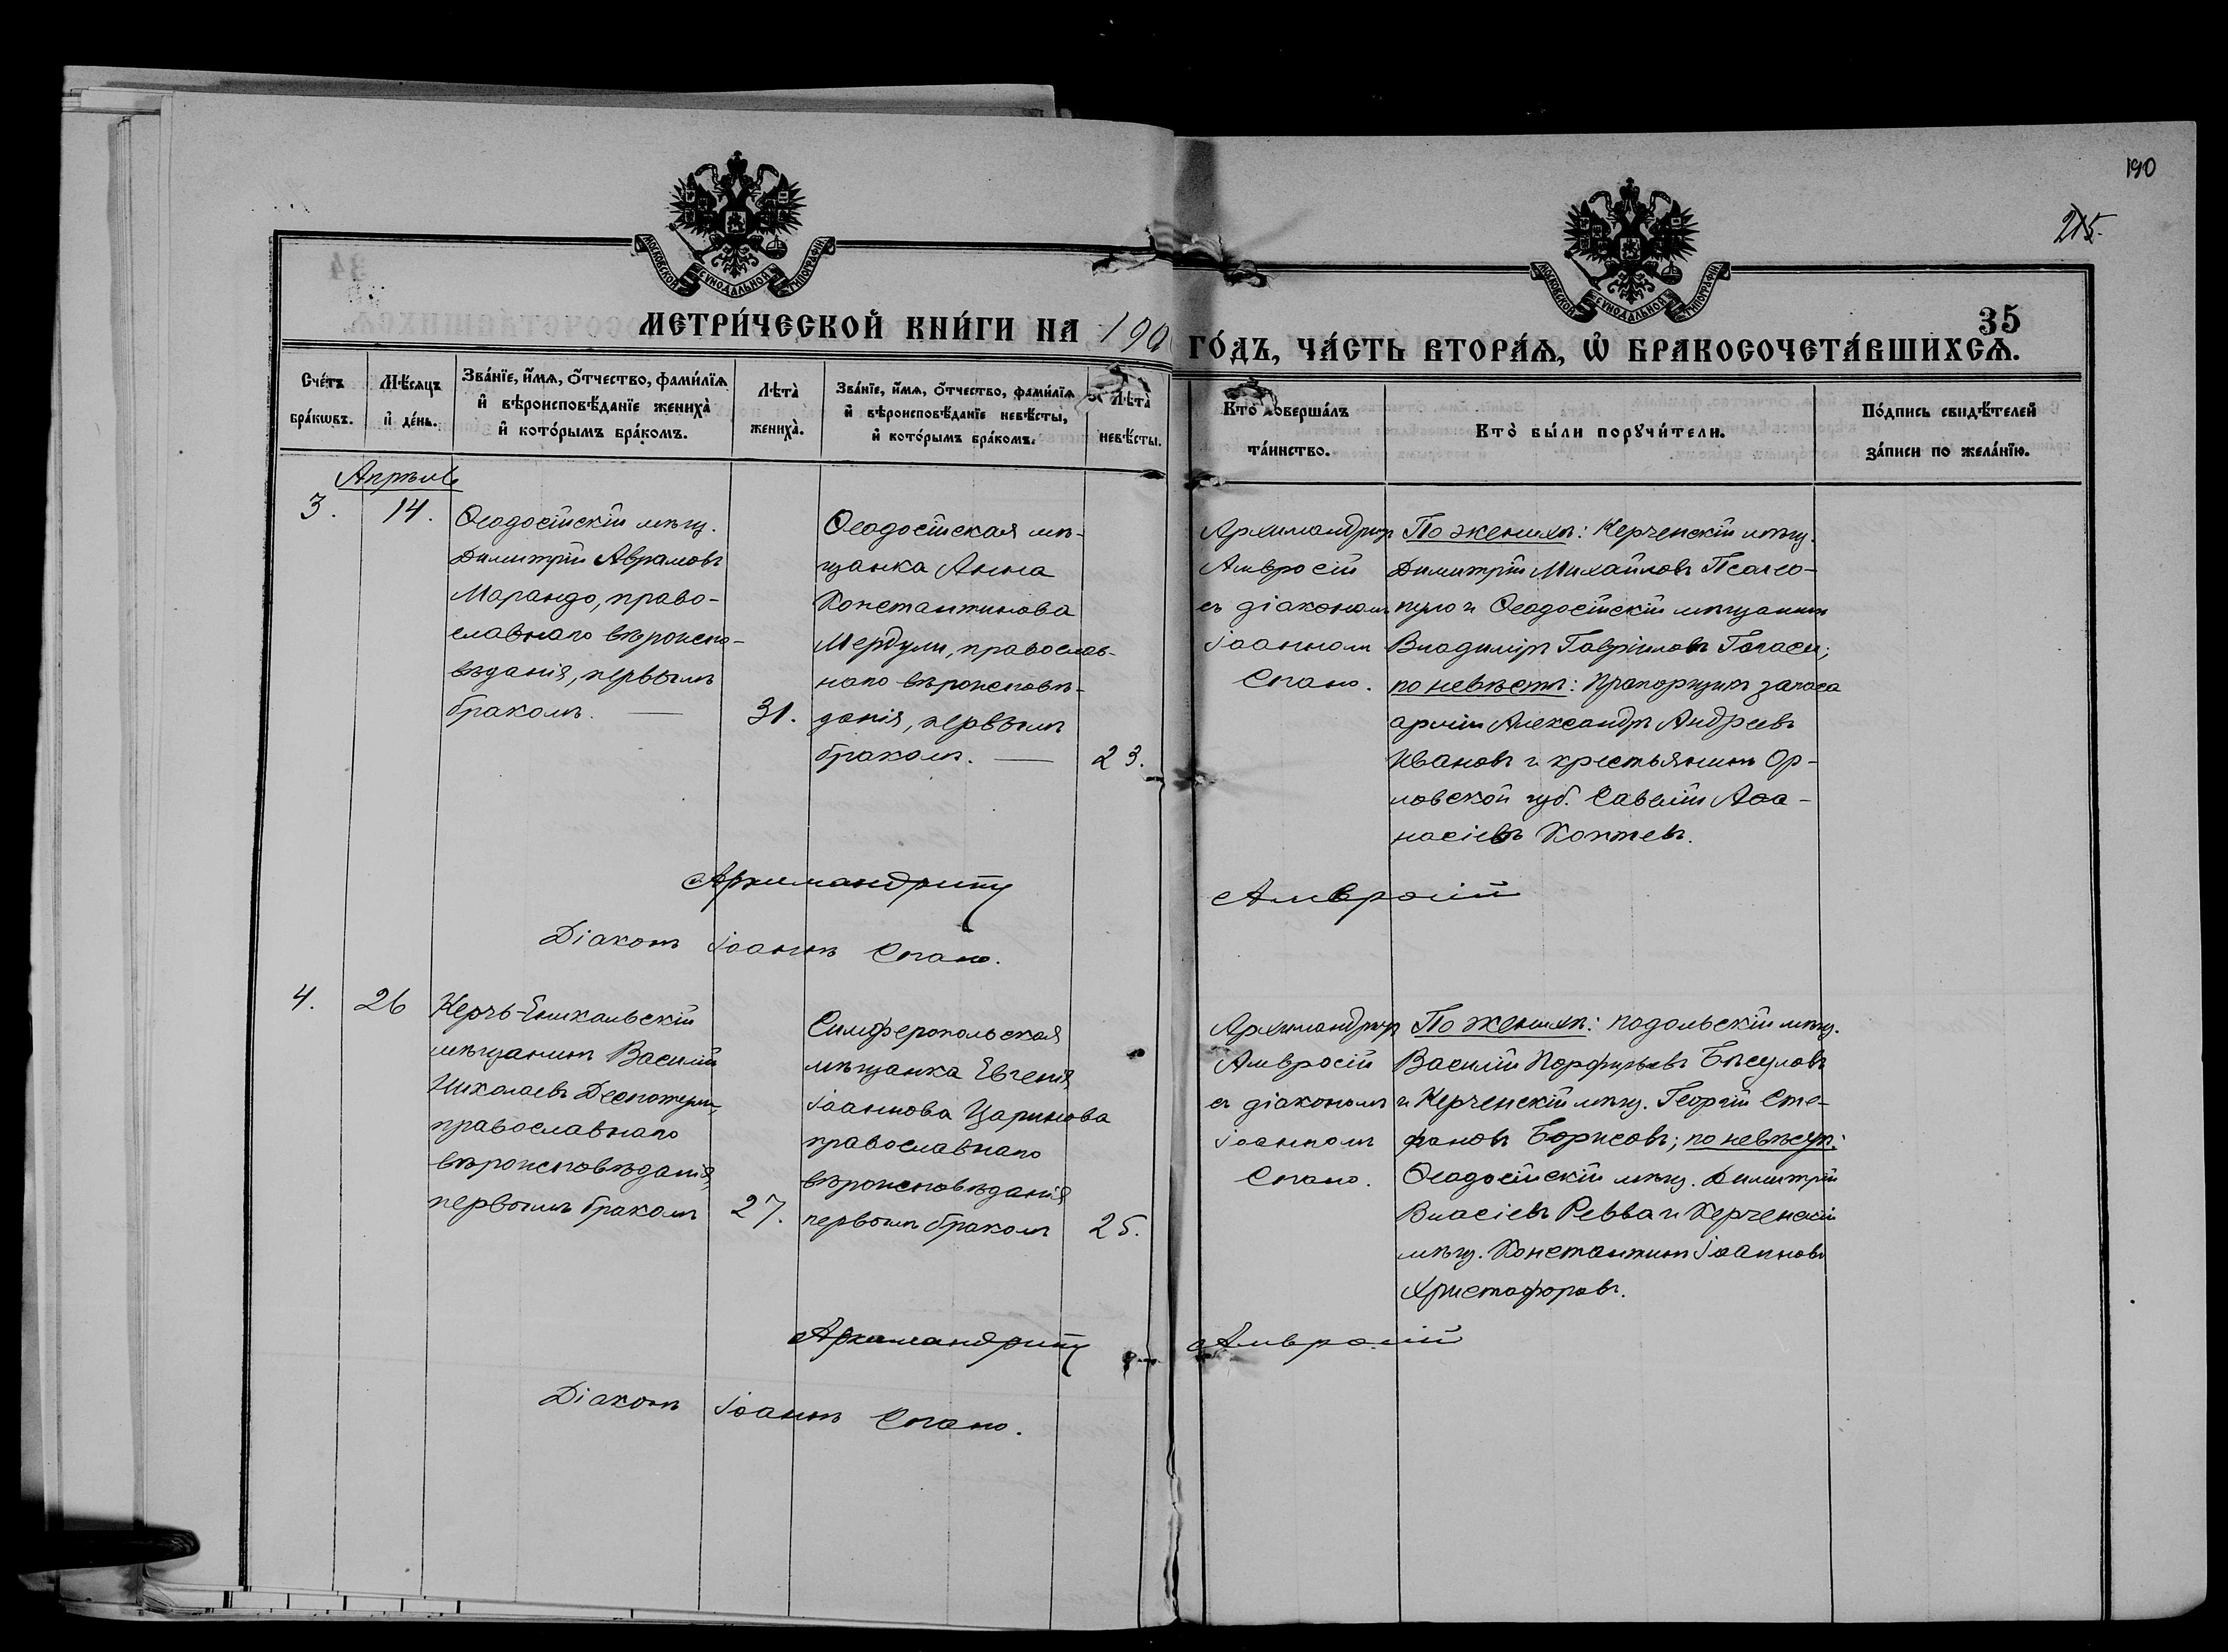 190
215.
МОСКОВСКОЙ СѴНОДАЛЬНОЙ ТИПОГРАФІИ
МОСКОВСКОЙ СѴНОДАЛЬНОЙ ТИПОГРАФІИ
35
МЕТРИ́ЧЕСКОЙ КНИ́ГИ НА 190
ГО́ДЪ, ЧА́СТЬ ВТОРА́Ѧ, Ѡ҆ БРАКОСОЧЕТА́ВШИХСѦ.
Сче́тъ бра́кѡвъ.
Мѣ́сяцъ и҆ де́нь.
Зва́нїе, и҆́мѧ, о҆́тчество, фами́лїѧ
и҆ вѣроисповѣ́данїе жениха̀
и҆ кото́рымъ бра́комъ.
Лѣта̀ жениха̀.
Зва́нїе, и҆́мѧ, о҆́тчество, фами́лїѧ
и҆ вѣроисповѣ́данїе невѣ́сты,
и҆ кото́рымъ бра́комъ.
Лѣта̀ невѣ́сты.
Кто̀ соверша́лъ та́инство.
Кто̀ бы́ли порꙋчи́тели.
По́дпись свидѣ́телей за́писи по жела́нїю.
Апрѣль
3.
14.
Ѳеодосійскій мѣщ.
Димитрій Аврамовъ
Марандо, право-
славнаго вѣроиспо-
вѣданія, первымъ
бракомъ. —
31.
Ѳеодосійская мѣ-
щанка Анна
Константинова
Мердули, православ-
наго вѣроисповѣ-
данія, первымъ
бракомъ. —
23.
Архимандрит
Амвросій
съ діакономъ
Іоанномъ
Спано.
По женихѣ: Керченскій мѣщ.
Димитрій Михайловъ Псалсо-
пуло и Ѳеодосійскій мѣщанинъ
Владиміръ Гавріиловъ
по невѣстѣ: Прапорщикъ запаса
арміи Александръ Андреевъ
Ивановъ и крестьянинъ Ор-
ловской губ. Савелій Аѳа-
насіевъ Коптевъ.
Архимандритъ Амвросій
Діаконъ Іоаннъ Спано.
4.
26
Керчь-Еникальскій
мѣщанинъ Василій
Николаевъ
православнаго
вѣроисповѣданія,
первымъ бракомъ
27.
Симферопольская
мѣщанка Евгенія
Іоаннова Царинова
православнаго
вѣроисповѣданія
первымъ бракомъ
25.
Архимандрит
Амвросій
съ діакономъ
Іоанномъ
Спано.
По женихѣ: подольскій мѣщ.
Василій Порфирьевъ Бѣсуловъ
и Керченскій мѣщ. Георгій Сте-
фановъ Борисовъ; по невѣстѣ:
Ѳеодосійскій мѣщ. Димитрій
Власіевъ Ревва и Керченскій
мѣщ. Константинъ Іоанновъ
Христофоровъ.
Архимандритъ Амвросій
Діаконъ Іоаннъ Спано.